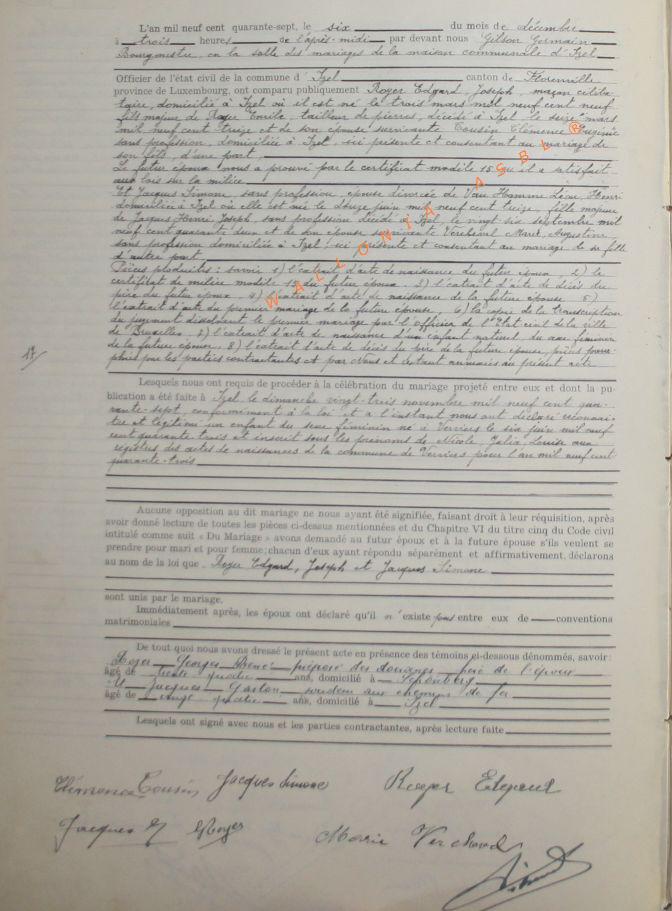 L'an mil neuf cent quarante-sept, le six du mois de décembre
à trois heures de l'après-midi par devant nous Gilson Germain
Bourgmestre, en la salle des mariages de la maison communale d'Izel
Officier de l'état civil de la commune d'Izel canton de Florenville
province de Luxembourg, ont comparu publiquement Roger Edgard, Joseph, maçon céliba
taire, domicilié à Izel où il est né le trois mars mil neuf cent neuf
fils majeur de Roger Emile, tailleur de pierres, décédé à Izel le seize mars
mil neuf cent treize et de son épouse survivante Cousin Clémence Eugénie
sans profession, domiciliée à Izel, ici présente et consentant au mariage de
son fils, d'une part
Le futur époux nous a prouvé par le certificat modèle 15 qu'il a satisfait
aux lois sur la milice
Et Jacques Simone, sans profession, épouse divorcée de Van Hamme Léon, Henri
domiciliée à Izel où elle est née le douze juin mil neuf cent treize, fille majeure
de Jacques Henri Joseph, sans profession décédé à Izel, le vingt six septembre mil
neuf cent quarante deux et de son épouse survivante Marie, Augustine
sans profession domiciliée à Izel, ici présente et consentant au mariage de sa fille
d'autre part
Pièces produites : savoir 1) l'extrait d'acte de naissance du futur époux 2) le
certificat de milice modèle 15 du futur époux. 3) l'extrait d'acte de décès du
père du futur époux. 4) l'extrait d'acte de naissance de la future épouse. 5)
l'extrait d'acte du premier mariage de la future épouse. 6) la copie de la transcription
du jugement dissolvant le premier mariage par l'officier de l'Etat civil de la ville
de Bruxelles. 7) l'extrait d'acte de naissance d'un enfant naturel du sexe féminin
de la future épouse. 8) l'extrait d'acte de décès du père de la future épouse, pièces para
phées par les parties contractantes et par Nous et restant annexées au présent acte
17/
Lesquels nous ont requis de procéder à la célébration du mariage projeté entre eux et dont la pu-
blication a été faite à Izel, le dimanche vingt-trois novembre mil neuf cent qua-
rante-sept, conformément à la loi et à l'instant nous ont déclaré reconnaî
tre et légitimer un enfant du sexe féminin né à Verviers le six juin mil neuf
cent quarante trois et inscrit sous les prénoms de Nicole, Julia, Louise aux
registres des actes de naissances de la commune de Verviers pour l'an mil neuf cent
quarante-trois
Aucune opposition au dit mariage ne nous ayant été signifiée, faisant droit à leur réquisition, après
avoir donné lecture de toutes les pièces ci-dessus mentionnées et du Chapitre VI du titre cinq du Code civil
intitulé comme suit « Du Mariage » avons demandé au futur époux et à la future épouse s'ils veulent se
prendre pour mari et pour femme; chacun d'eux ayant répondu séparément et affirmativement, déclarons
au nom de la loi que Roger Edgard, Joseph et Jacques Simone
sont unis par le mariage.
Immédiatement après, les époux ont déclaré qu'il n'existe pas entre eux de conventions
matrimoniales
De tout quoi nous avons dressé le présent acte en présence des témoins ci-dessous dénommés, savoir :
Roger Georges René préposé des douanes frère de l'époux
âgé de trente quatre ans, domicilié à Schönberg
Et Jacques Gaston aux chemins de fer
âgé de quatre ans, domicilié à Izel
Lesquels ont signé avec nous et les parties contractantes, après lecture faite
Clémence Cousin Jacques Simone Roger Edgard
Jacques G Roger Marie
WALLONIA ASBL ®